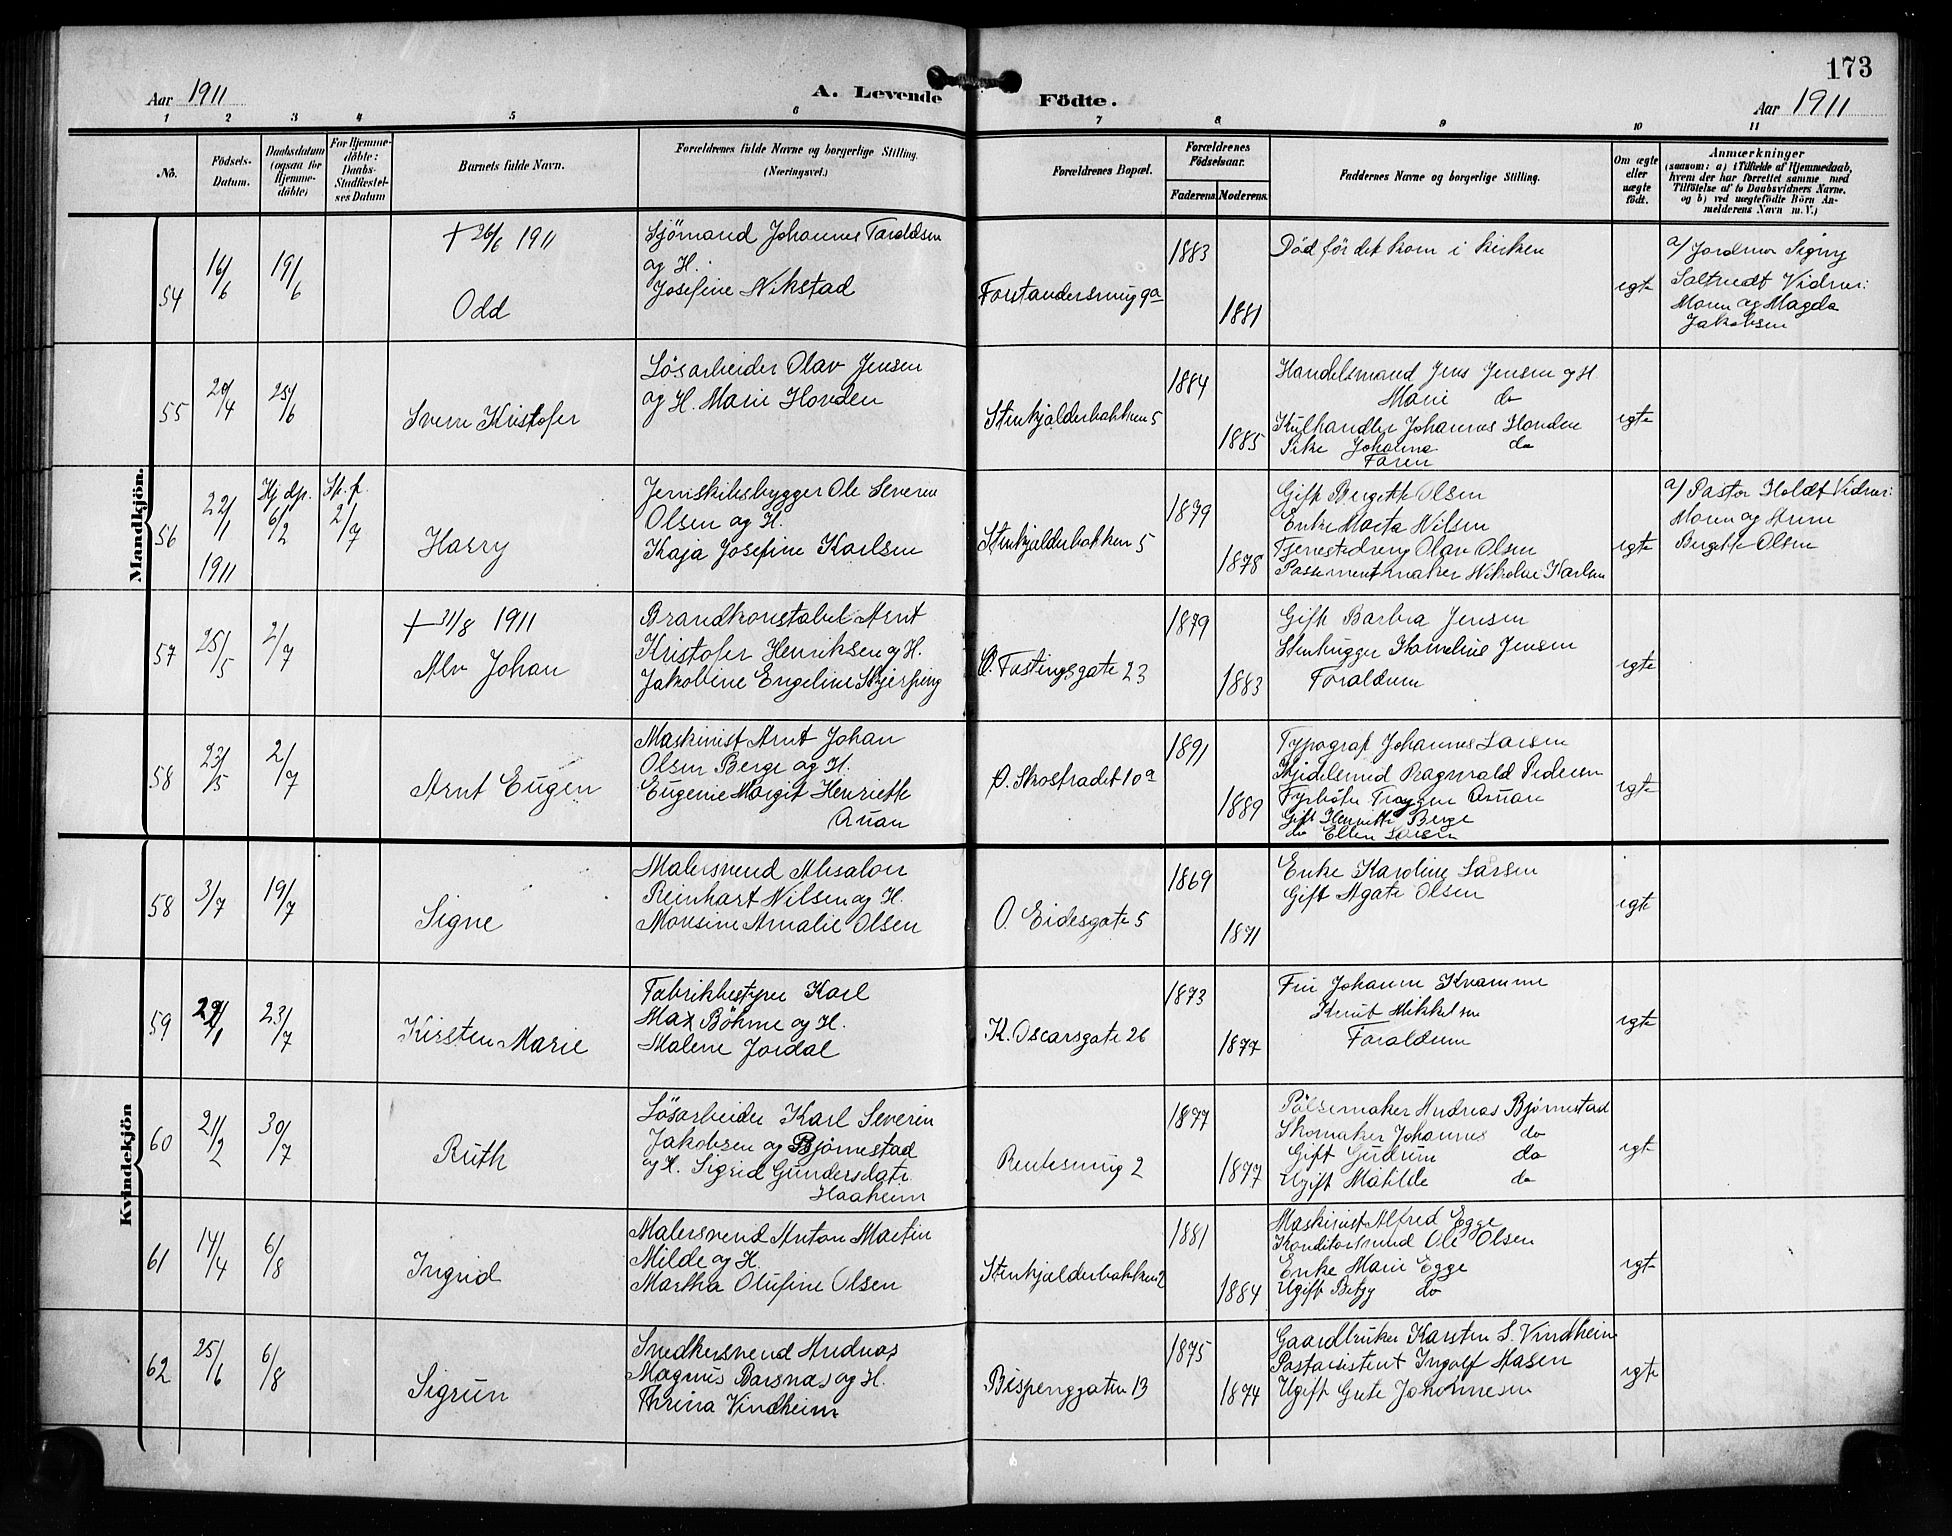 173
Aar 1911
A. Levende Födte.
Aar 1911
1 2 3 4 5 6 7 8 9 10 11
No.
Födsels-Datum.
Daabsdatum (ogsaa för Hjemme-döbte)
For Hjemme-döbte: Daabs-Stadfæstel-ses Datum
Barnets fulde Navn.
Forældrenes fulde Navne og borgerlige Stilling.
(Næringsvei.)
Forældrenes Bopæl.
Forældrenes Födselsaar.
Faderens. Moderens.
Faddernes Navne og borgerlige Stilling.
Om ægte eller uægte födt.
Anmærkninger
(saasom: a) i Tilfælde af Hjemmedaab, hvem der har forrettet samme med Tilföielse af to Daabsvidners Navne, og b) ved uægtefödte Börn An-melderens Navn m. V.)
Mandkjön.
54 16/6 19/6
+ 26/6 1911
Odd
Sjömand Johannes Taraldsen
og H.
Josefine Nikstad
Forstandersmug 9a
1883
1881
Död för det kom i kirken
egte
a/ Jordmor Signy
Vidner:
Moren og Magda
Jakobsen
55 20/4 25/6
Sverre Kristofer
Lösarbeider Olav Jensen
og H. Marie Hovden
Stenkjælderbakken 5
1884
1885
Handelsmand Jens Jensen og H.
Marie do
Kulhandler Johannes Hovden
Pike Johanne do
Faren
egte
56 22/1 1911
Hj. dp. 6/2
St. f. 2/7
Harry
Jernskibsbygger Ole Severin
Olsen og H.
Kaja Josefine Karlsen
Stenkjælderbakken 5
1879
1878
Gift Bergitte Olsen
Enke Marta Nilsen
Tjenestedreng Olav Olsen
Passementmaker Nikolai Karlsen
egte
a/ Pastor Holdt Vidner:
Moren og
Bergitte Olsen
57 25/5 2/7
+ 31/8 1911
Alv Johan
Brandkonstabel Arnt
Kristofer Henriksen og H.
Jakobine Engeline Skjerping
Ø. Fastingsgate 23
1879
1883
Gift Barbra Jensen
Stenhugger Kornelius Jensen
Foraldrene
egte
58 23/5 2/7
Arnt Eugen
Maskinist Arnt Johan
Olsen Berge og H.
Eugenie Margit Henriette
Qvan
Ø. Skostrædet 10a
1891
1889
Typograf Johannes Larsen
Kjedelsmed Ragnvald Pedersen
Fyrböter Trygve Qvan
Gift Henriette Berge
do Ellen Larsen
egte
Kvindekjön
58 3/7 19/7
Signe
Malersvend Absalon
Reinhart Nilsen og H.
Monsine Amalie Olsen
O. Eidesgate 5
1869
1871
Enke Karoline Larsen
Gift Agate Olsen
egte
59 29/1 23/7
Kirsten Marie
Fabrikbestyrer Karl
Max Böhme og H.
Malene Jordal
K. Oscarsgate 26
1873
1877
Fru Johanne Kvamme
Knut Mikkelsen
Foraldrene
egte
60 21/2 30/7
Ruth
Lösarbeider Karl Severin
Jakobsen og Bjørnestad
og H. Sigrid Gundersdatr.
Haaheim
Reutersmug 2
1877
1877
Pölsemaker Andreas Bjørnestad
Skomaker Johannes do
Gift Gudrun do
Ugift Matilde do
egte
61 14/4 6/8
Ingrid
Malersvend Anton Martin
Milde og H.
Martha Olufine Olsen
Stenkjælderbakken 2
1881
1884
Maskinist Alfred Egge
Konditorsvend Ole Olsen
Enke Marie Egge
Ugift Betzy do
egte
62 25/6 6/8
Sigrun
Snedkersvend Andreas
Magnus Barsnæs og H.
Thrina Vindheim
Bispenggaten 13
1875
1874
Gaardbruker Karsten S. Vindheim
Postassistent Ingolf Hasen
Ugift Grete Johannesen
egte